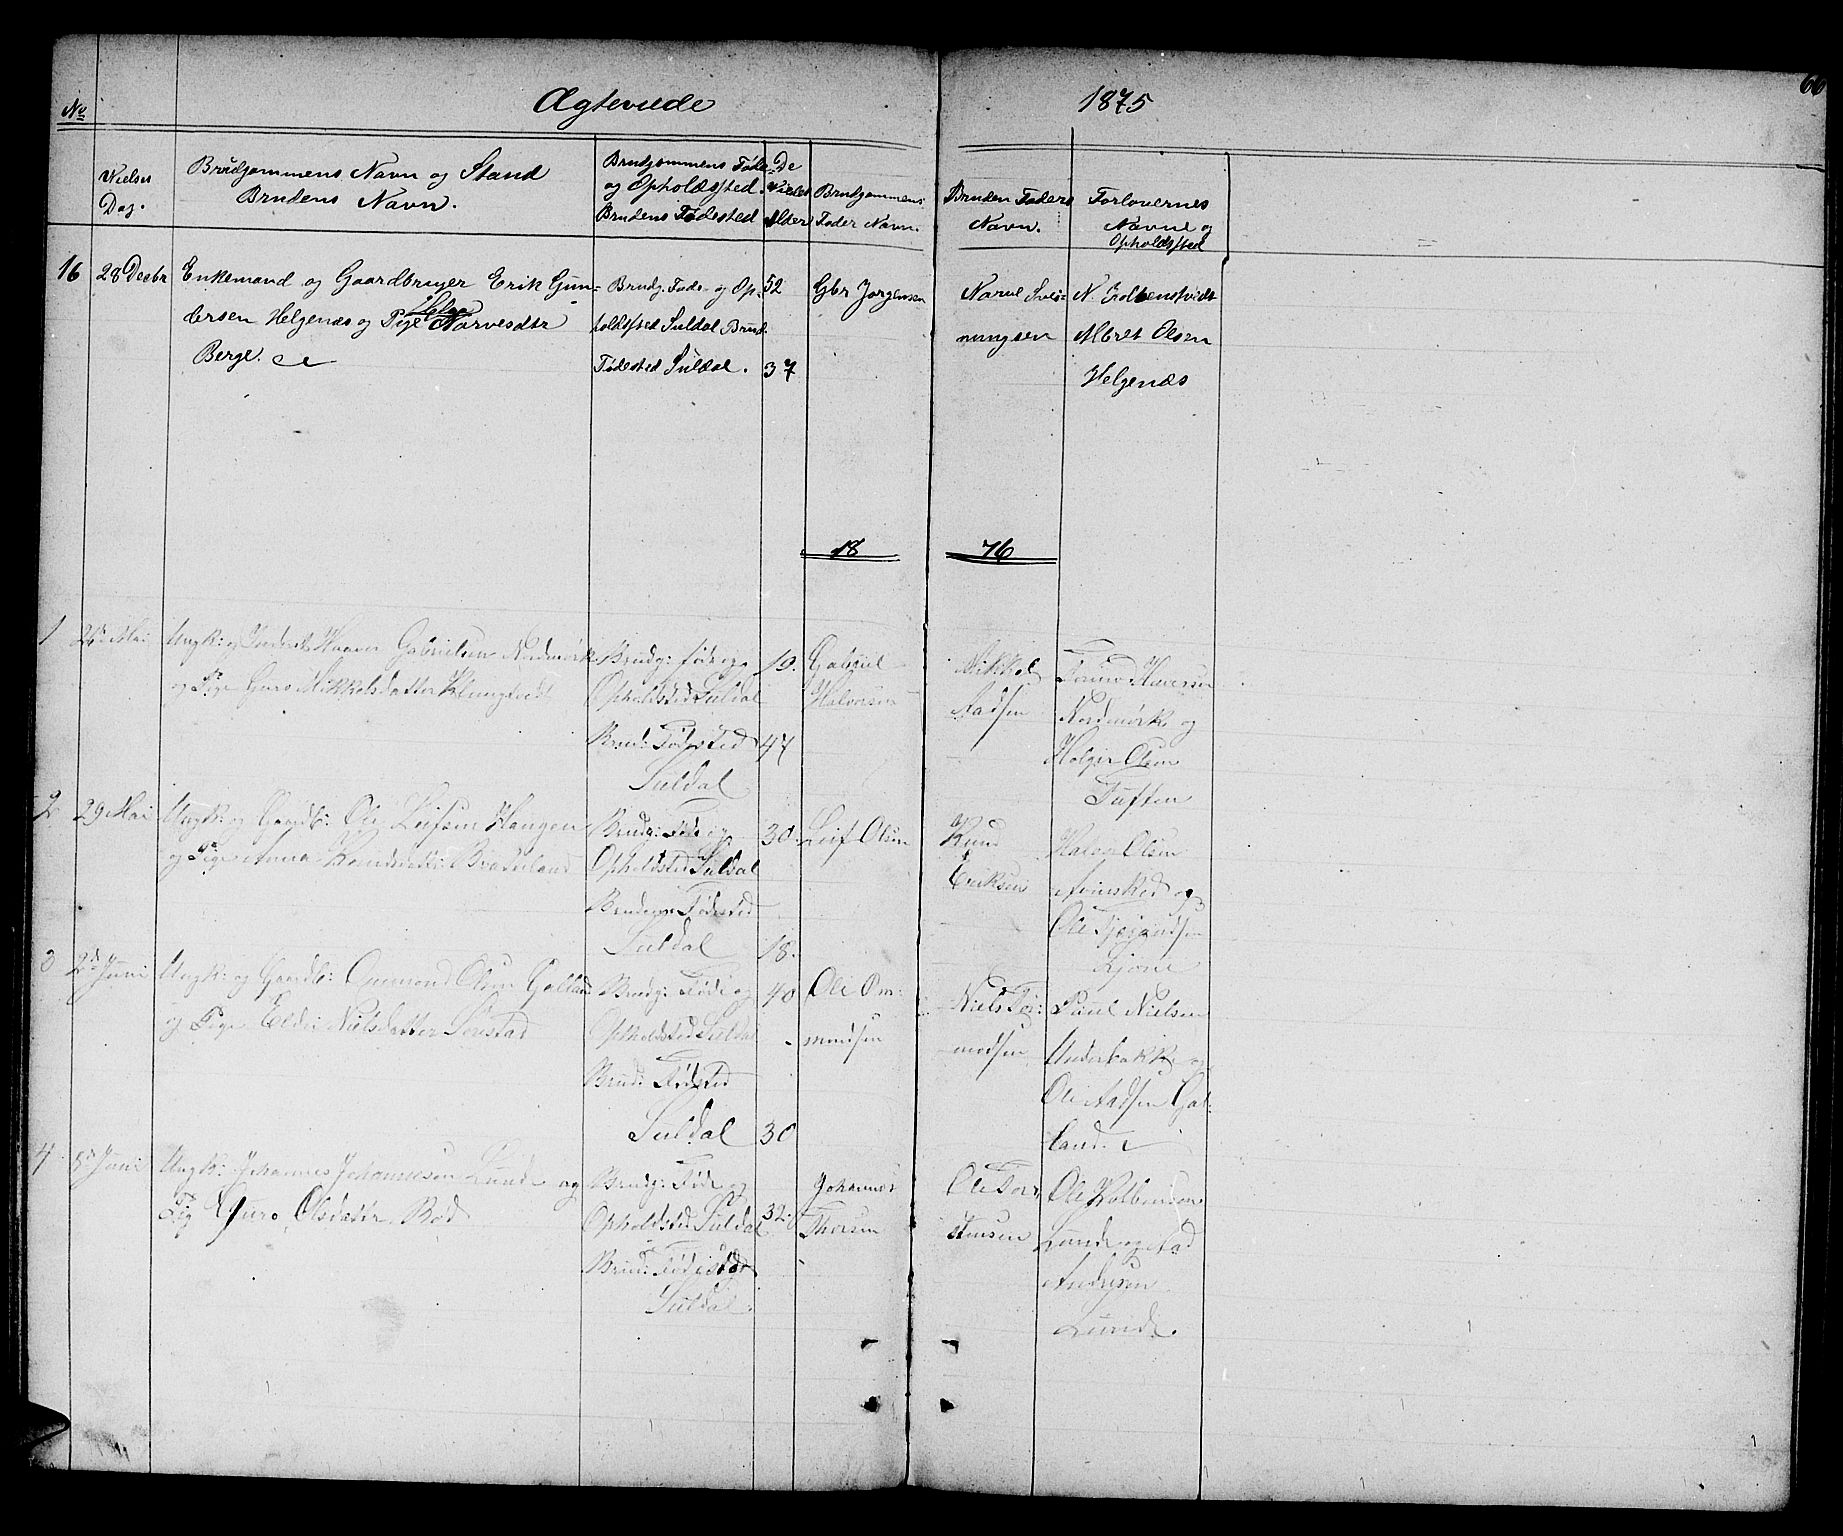 66
Ægteviede 1875
No
Vielses Dag.
Brudgommens Navn og Stand
Brudens Navn.
Brudgommens Føde-
og Opholdssted.
Brudens Fødested
De
Viedes
Alder
Brudgommens
Fader Navn.
Bruden Faders
Navn.
Forlovernes
Navne og
Opholdssted
16 28 Decbr Enkemand og Gaardbruger Erik Gun=
bersen Helgenæs og Pige Narvesdtr
Berge.
Brudg. Føde- og Op-
holdssted Suldal Brud.
Fødested Suldal.
52
37
Gbr Jorgensen
Narve Svei=
nungsen
N. Kolbenstvedt
Albret Olsen
Helgenæs
18 76
1 26 Mai Ungk: og Gabrielsen Nordmørk
og Pige Guro Mikkelsdatter Klungtvedt
Brudg: føde og
Opholdsted Suldal
Brud: Fødested
Suldal
19.
47
Gabriel
Halvorsen
Mikkel
Aadsen
Halvorsen
Nordmørk og
Holger Olsen
Tuften
2 29 Mai Ungk: og Gaardb: Ole Leifsen Haugen
og Pige Anna
Brudg: Føde og
Opholdsted Suldal
Brudens Fødested
Suldal
30.
18.
Leif Olsen
Knud
Eriksen
Halvor Olsen
og
Ole
3 2d Juni Ungk: og Gaardb: Gunmond Olsen Galland
og Pige Eldri Nielsdatter
Brudg: Føde og
Opholdsted Suldal
Brud: Fødested
Suldal
40
30
Ole Om:
mundsen
Niels Tor:
modsen
Paul Nielsen
Underbakke og
Ole Aadsen Gal:
land.
4 5d Juni Ungk: Johannes Johannessen Lunde og
Pig Guro Olsdattr. Rød
Brudg: Føde og
Opholdsted Suldal
Brud: Fødested
Suldal.
32.
Johannes
Thorsen
Ole Tor:
stensen
Ole Kolbensen
Lunde og Aad
Andersen
Lunde.